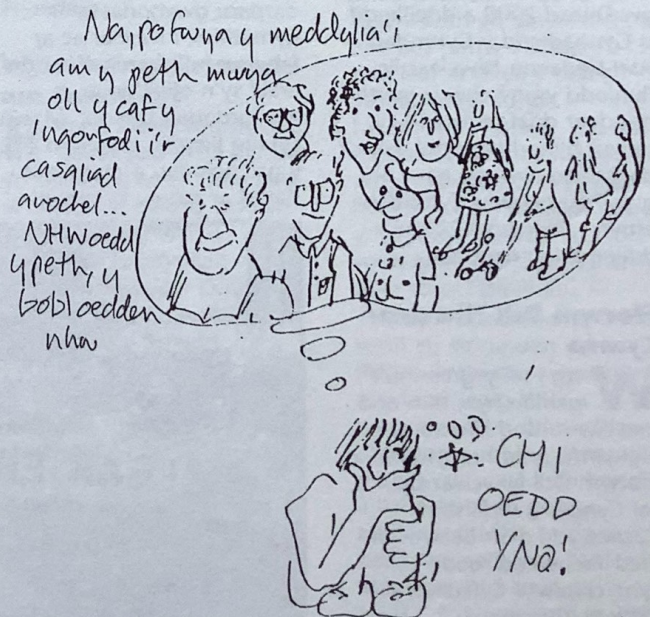 Na, po fwya y meddylia' i
am y peth mwya
oll y caf y
'ngorfodi i'r
casgliad
anochel...
NHW oedd
y peth, y
bobl oedden
nhw
CHI
OEDD
YNO!